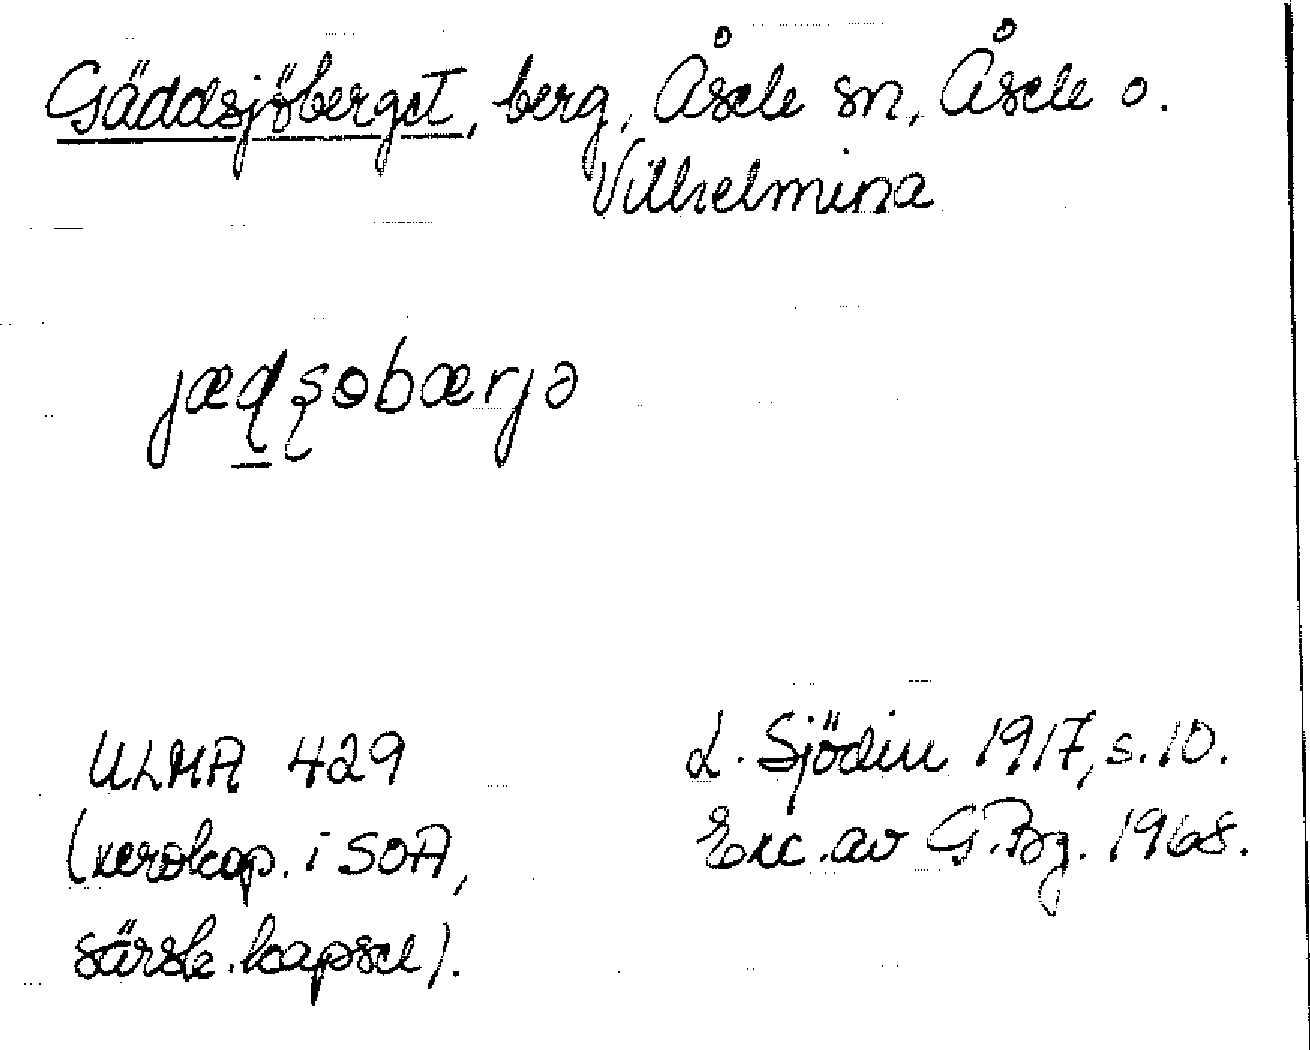 Gäddsjöberget, berg, Åsele sn, Åsele o.
Vilhelmina
jæɖʂɵbærjə
ULMA 429
(xerokop. i SOA,
särsk. kapsel).
L. Sjödin 1917, s. 10.
Exc. av G. Bg. 1968.